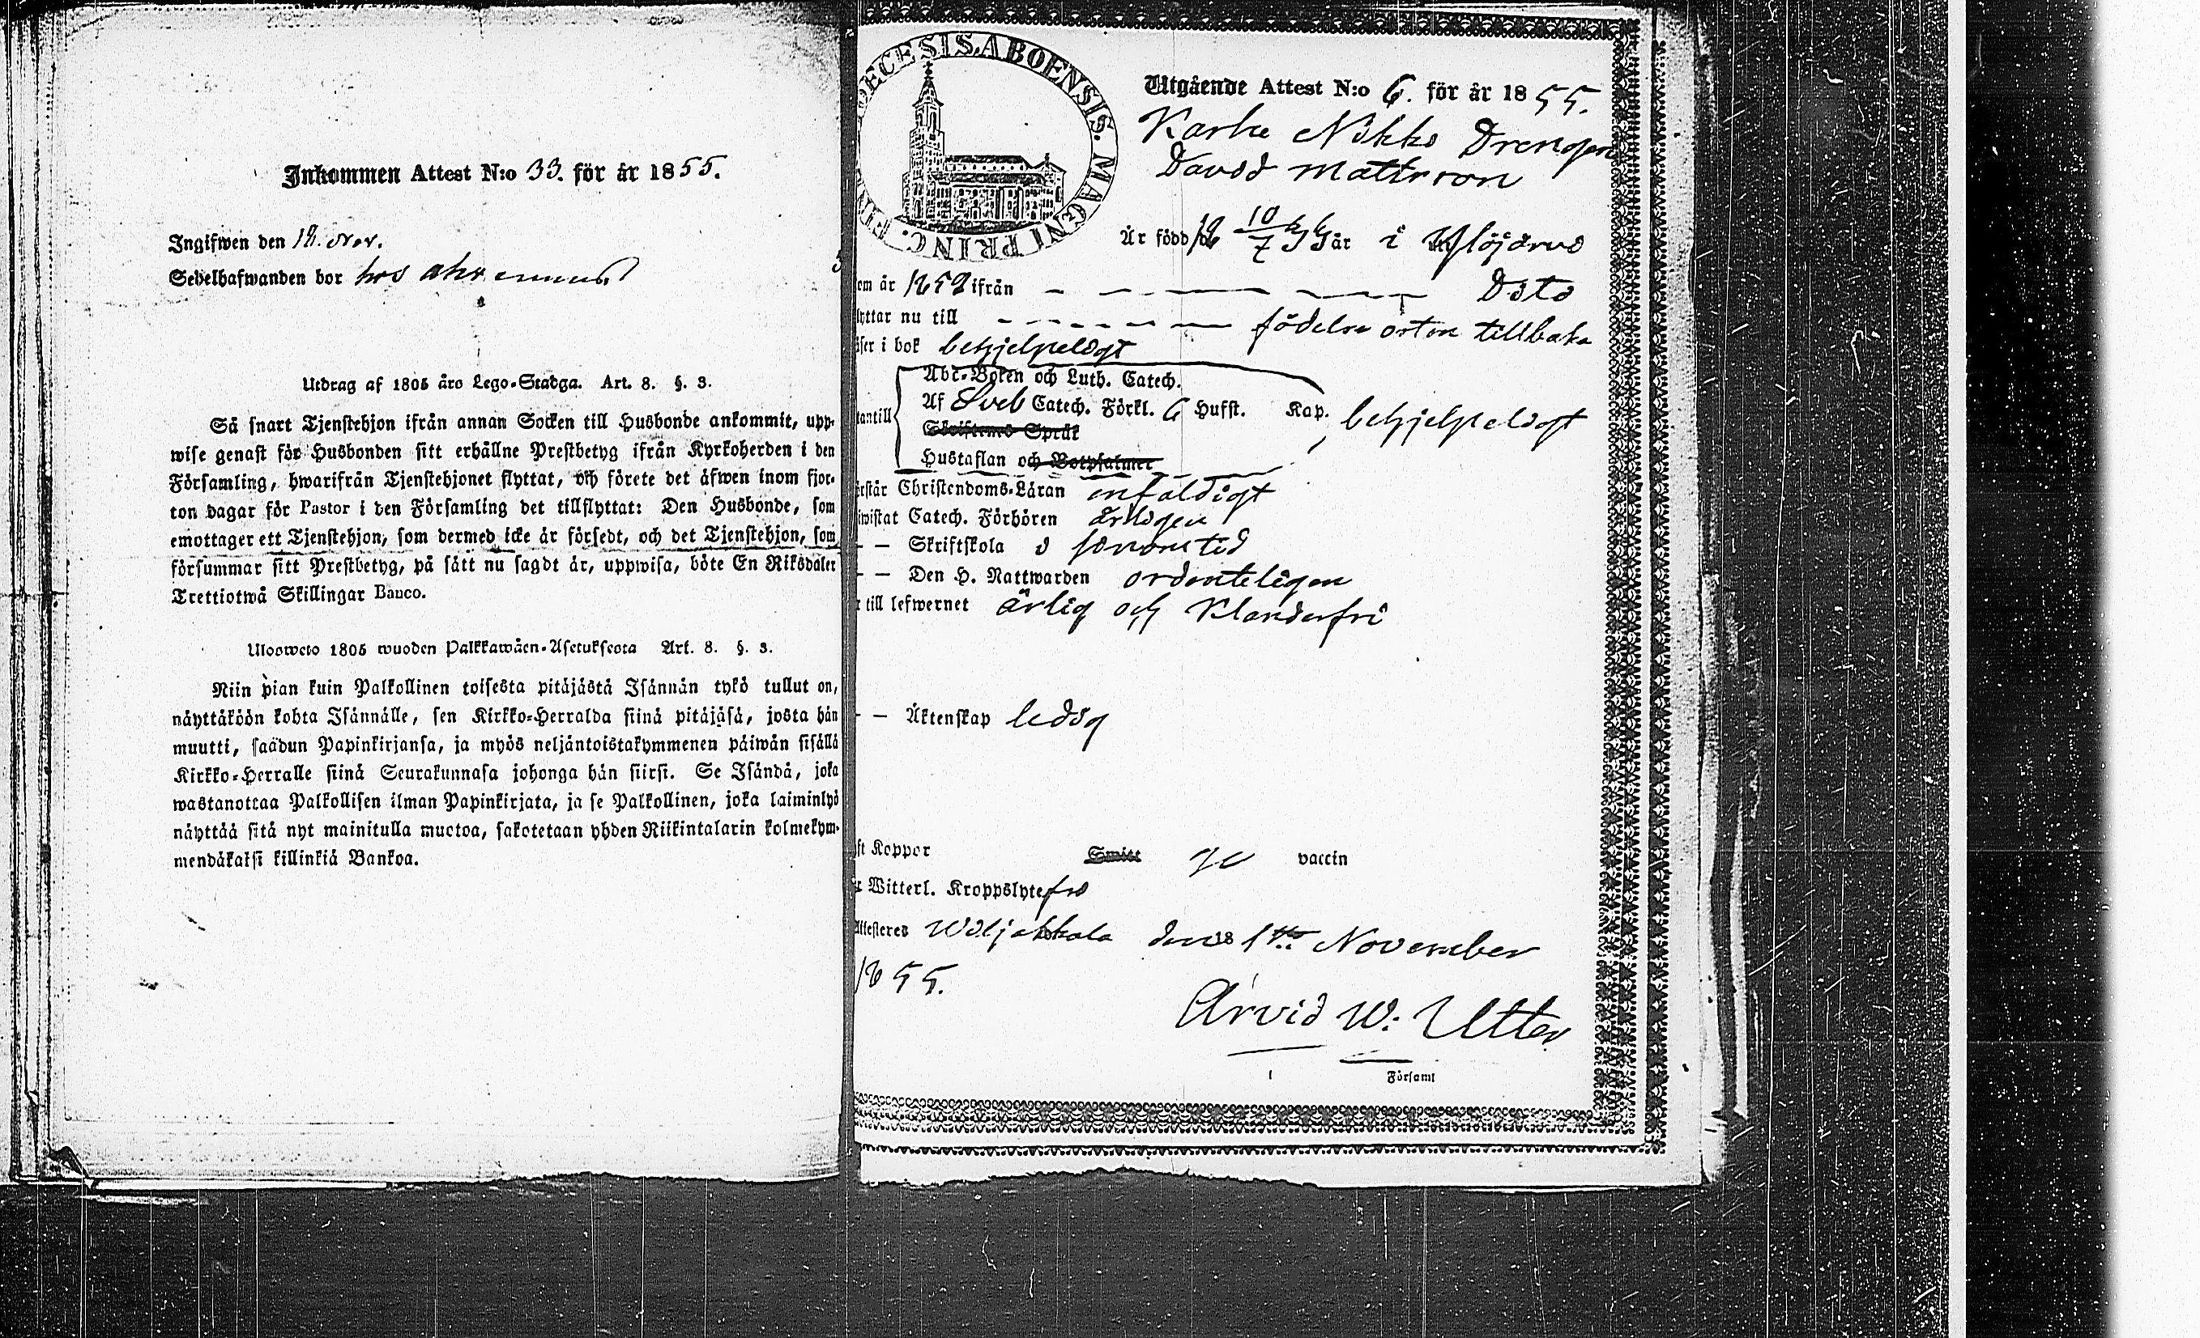 Inkommen Attest N:o 33. för år 1855.
Ingifwen den 18. Nov.
Sedelhafwanden bor hos
Utdrag af 1805 års Lego-Stadga. Art. 8. §. 3.
Så snart Tjenstehjon ifrån annan Socken till Husbonde ankommit, upp-
wise genast för Husbonden sitt erhållne Prestbetyg ifrån Kyrkoherden i den
Församling, hwarifrån Tjenstehjonet flyttat, och förete det äfwen inom fjor-
ton dagar för Pastor i den Församling det tillflyttat: Den Husbonde, som
emottager ett Tjenstehjon, som dermed icke är försedt, och det Tjenstehjon, som
försummar sitt Prestbetyg, på sätt nu sagdt är, uppwisa, böte En Riksdaler
Trettiotwå Skillingar Banco.
Ulosweto 1805 wuoden Palkkawäen-Asetuksesta Art. 8. §. 3.
Niin pian kuin Palkollinen toisesta pitäjästä Isännän tykö tullut on,
näyttäköön kohta Isännälle, sen Kirkko-Herralda siinä pitäjäsä, josta hän
muutti, saadun Papinkirjansa, ja myös neljäntoistakymmenen päiwän sisällä
Kirkko-Herralle siinä Seurakunnasa johonga hän siirsi. Se Isändä, joka
wastanottaa Palkollisen ilman Papinkirjata, ja se Palkollinen, joka laiminlyö
näyttää sitä nyt mainitulla muotoa, sakotetaan yhden Riikintalarin kolmekym-
mendäkaksi killinkiä Bankoa.
DIOECESIS ABOENSIS. MAGNI PRINC. FIN
Utgående Attest N:o 6. för år 1855.
Karhe Nikko Drengen
David Mattsson
Är född 18 10/7 34 år i Ylöjärvi
om år 1852 ifrån — — — — — Dito
lyttar nu till — — — — — födelse orten tillbaka
äser i bok behjelpeligt
Abc-Boken och Luth. Catech.
tantill Af Sveb Catech. Förkl. 6 Husst. Kap. behjelpeligt
Skriftens Språk
Hustaflan och Botpsalmer
erstår Christendoms-Läran enfaldigt
iwistat Catech. Förhören årligen
— — Skriftskola i sinom tid
— — Den H. Nattwarden ordenteligen
r till lefwernet ärlig och klanderfri
— — Äktenskap ledig
ft Koppor Smitt ge vaccin
r Witterl. Kroppslyte fri
Attesteras Wiljakkala den 18 1sta November
1855.
Arvid W: Utter
Församl